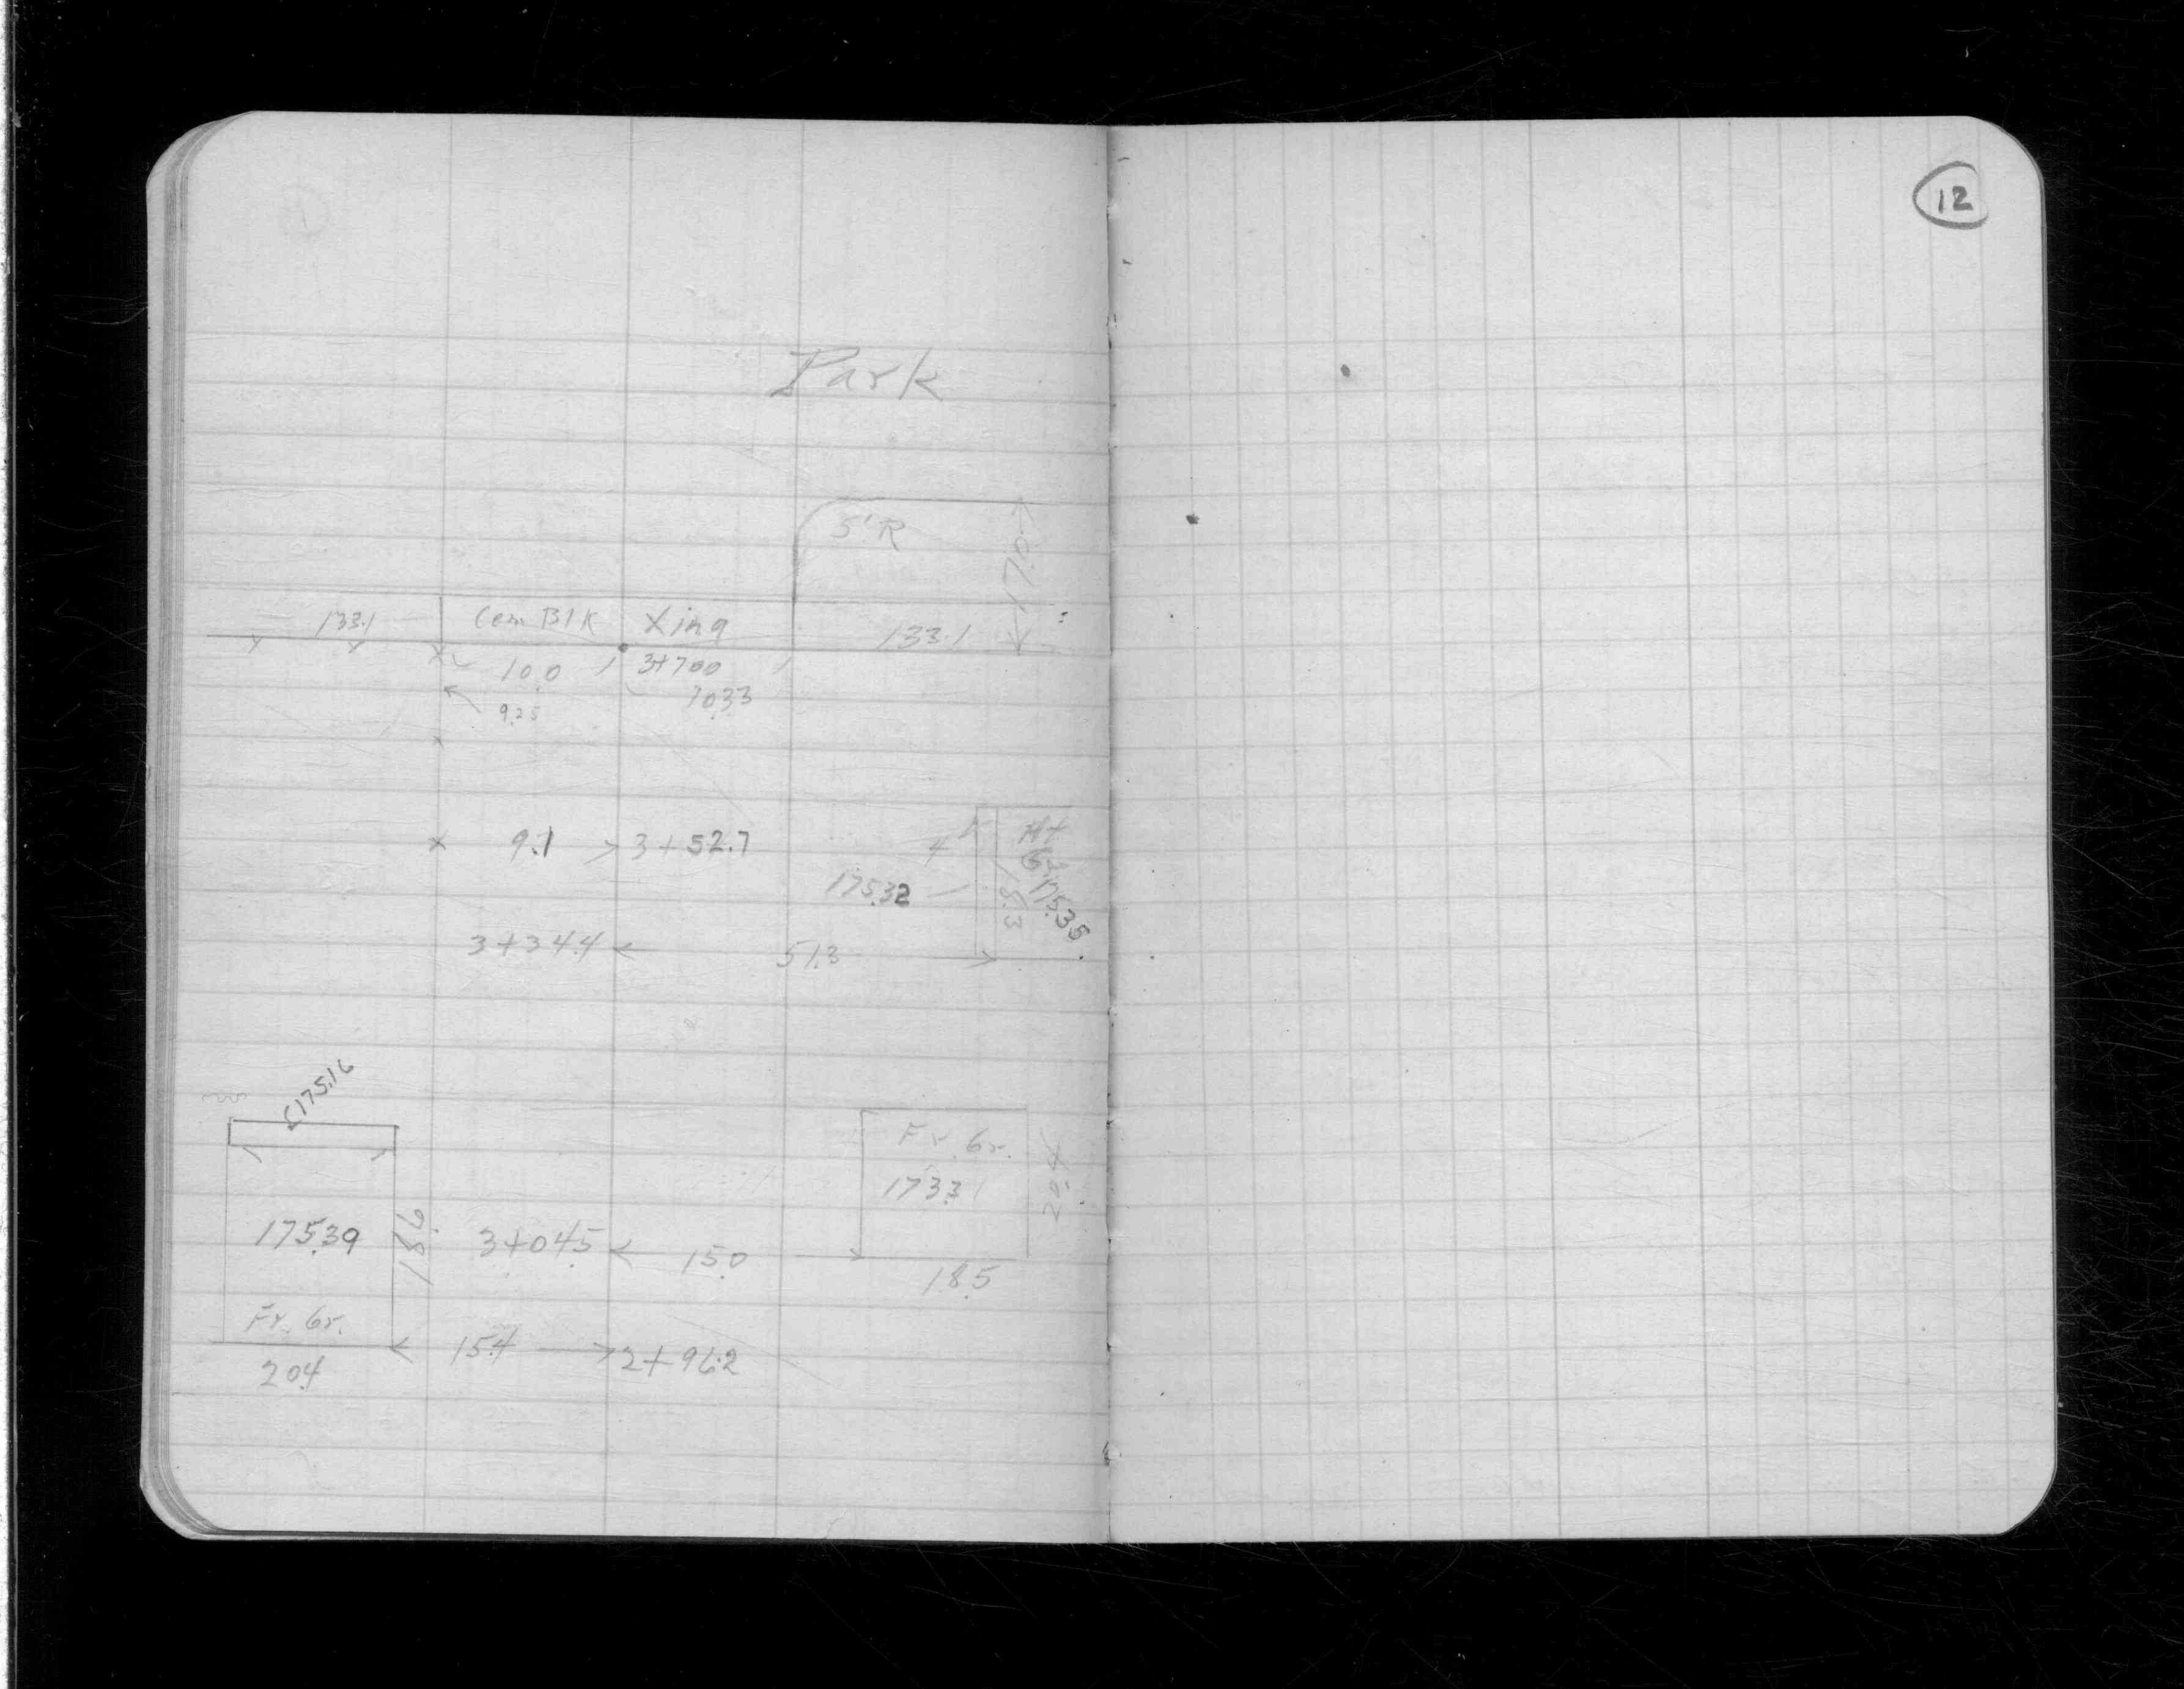 12
Park
5'R
17.0
133.1 Cem Blk Xing 133.1
10.0 3+70.0
9.25 10.33
9.1 > 3+52.7
4
175.32
175.38
3+34.4 < 51.3
175.16
Fr. Gr.
173.31
20.4
175.39
18.1
3+04.5 < 15.0
18.5
Fr. Gr.
15.4 > 2+96.2
20.4